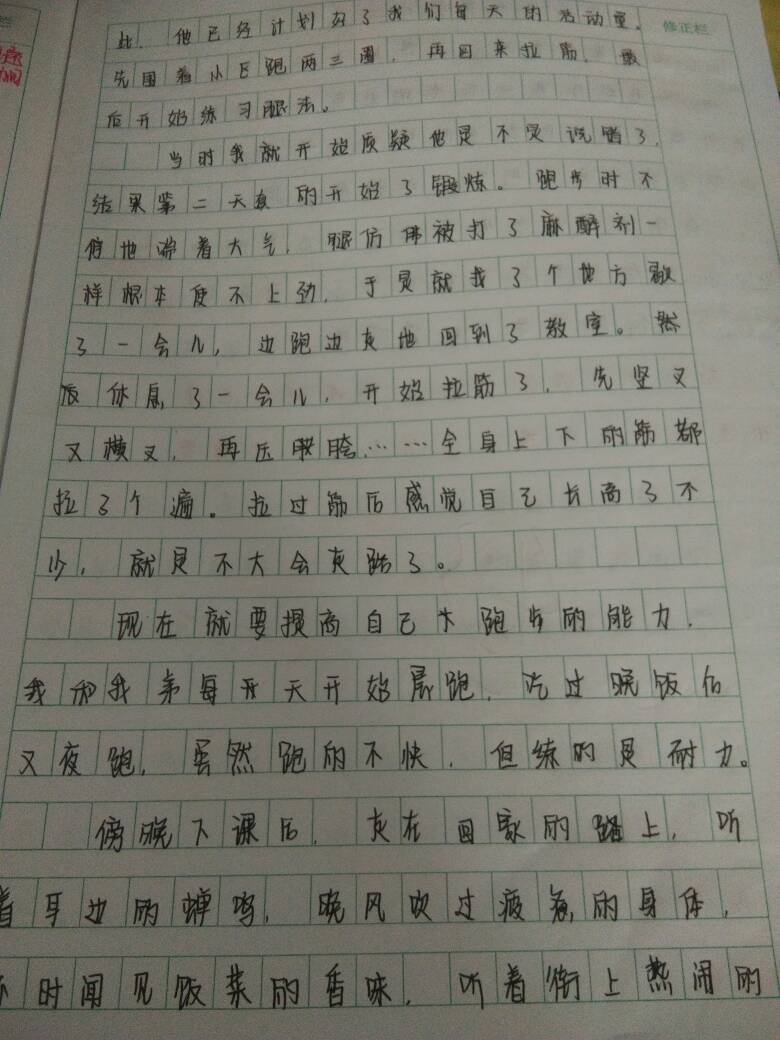 此，他已经计划好了我们每天的活动量。
修正栏
先围着小区跑两三圈，再回来拉筋，最
后开始练习腿法。
当时我就开始质疑他是不是说错了，
结果第二天真的开始了锻炼。跑步时不
停地喘着大气，腿仿佛被打了麻醉剂一
样根本使不上劲，于是就找了个地方歇
了一会儿，边跑边走地回到了教室。然
后休息了一会儿，开始拉筋了，先竖叉
又横叉，再压胯……全身上下的筋都
拉了个遍。拉过筋后感觉自己长高了不
少，就是不大会走路了。
现在就要提高自己跑步的能力，
我和我弟每天开始晨跑，吃过晚饭后
又夜跑，虽然跑的不快，但练的是耐力。
傍晚下课后，走在回家的路上，听
着耳边的蝉鸣，晚风吹过疲惫的身体，
不时闻见饭菜的香味，听着街上热闹的